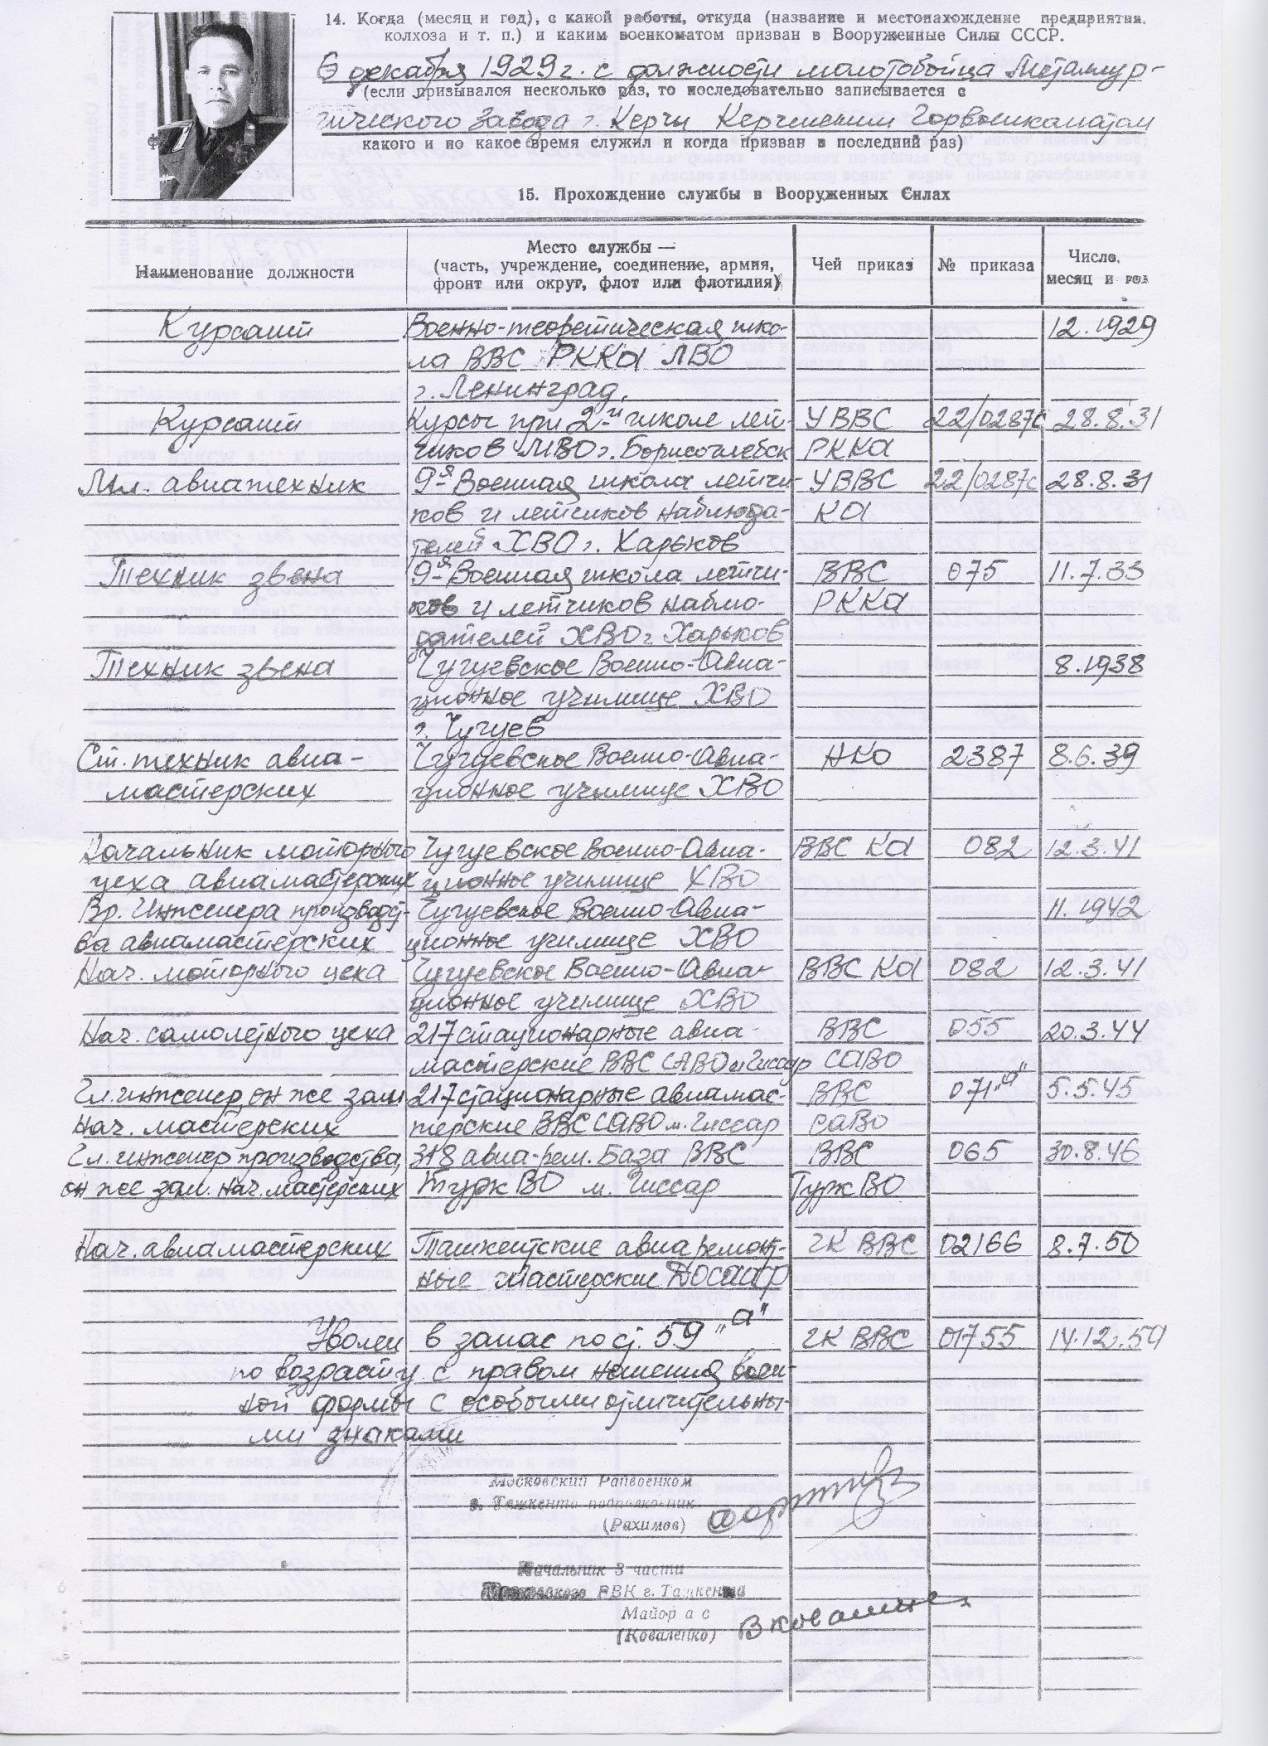 14. Когда (месяц и год), с какой работы, откуда (название и местонахождение предприятия,
колхоза и т. п.) и каким военкоматом призван в Вооруженные Силы СССР.
6 декабря 1929 г. с должности молотобойца Металлур-
(если призывался несколько раз, то последовательно записывается с
гического завода г. Керчи Керченским Горвоенкоматом
какого и по какое время служил и когда призван в последний раз)
15. Прохождение службы в Вооруженных Силах
Наименование должности
Место службы —
(часть, учреждение, соединение, армия,
фронт или округ, флот или флотилия)
Чей приказ
№ приказа
Число,
месяц и год
Курсант Военно-теоретическая шко- 12.1929
ла ВВС РККА ЛВО
г. Ленинград.
Курсант Курсы при 2-й школе лет- УВВС 22/0287с 28.8.31
чиков МВО г. Борисоглебск РККА
Мл. авиатехник 9-я Военная школа летчи- УВВС 22/0287с 28.8.31
ков и летчиков наблюда- КА
телей ХВО г. Харьков
Техник звена 9-я Военная школа летчи- ВВС 075 11.7.33
ков и летчиков наблю- РККА
дателей ХВО г. Харьков
Техник звена Чугуевское Военно-Авиа- 8.1938
ционное училище ХВО
г. Чугуев
Ст. техник авиа- Чугуевское Военно-Авиа- НКО 2387 8.6.39
мастерских ционное училище ХВО
Начальник моторного Чугуевское Военно-Авиа- ВВС КА 082 12.3.41
цеха авиамастерских ционное училище ХВО
Вр. Инженера производст- Чугуевское Военно-Авиа- 11.1942
ва авиамастерских ционное училище ХВО
Нач. моторного цеха Чугуевское Военно-Авиа- ВВС КА 082 12.3.41
ционное училище ХВО
Нач. самолетного цеха 217 стационарные авиа- ВВС 055 20.3.44
мастерские ВВС САВО м. Гиссар САВО
Гл. инженер, он же зам 217 стационарные авиамас- ВВС 071"а" 5.5.45
Нач. мастерских терские ВВС САВО м. Гиссар САВО
Гл. инженер производства, 318 авиа-рем. База ВВС ВВС 065 30.8.46
он же зам. нач. мастерских ТуркВО м. Гиссар ТуркВО
Нач. авиамастерских Ташкентские авиаремонт- ГК ВВС 02166 8.7.50
ные мастерские ДОСААФ
Уволен в запас по ст. 59 "а" ГК ВВС 01755 14.12.59
по возрасту с правом ношения воен-
ной формы с особыми отличительны-
ми знаками
Московский Райвоенком
г. Ташкента подполковник
(Рахимов)
Начальник 3 части
РВК г. Ташкента
Майор а с
(Коваленко) В Коваленко